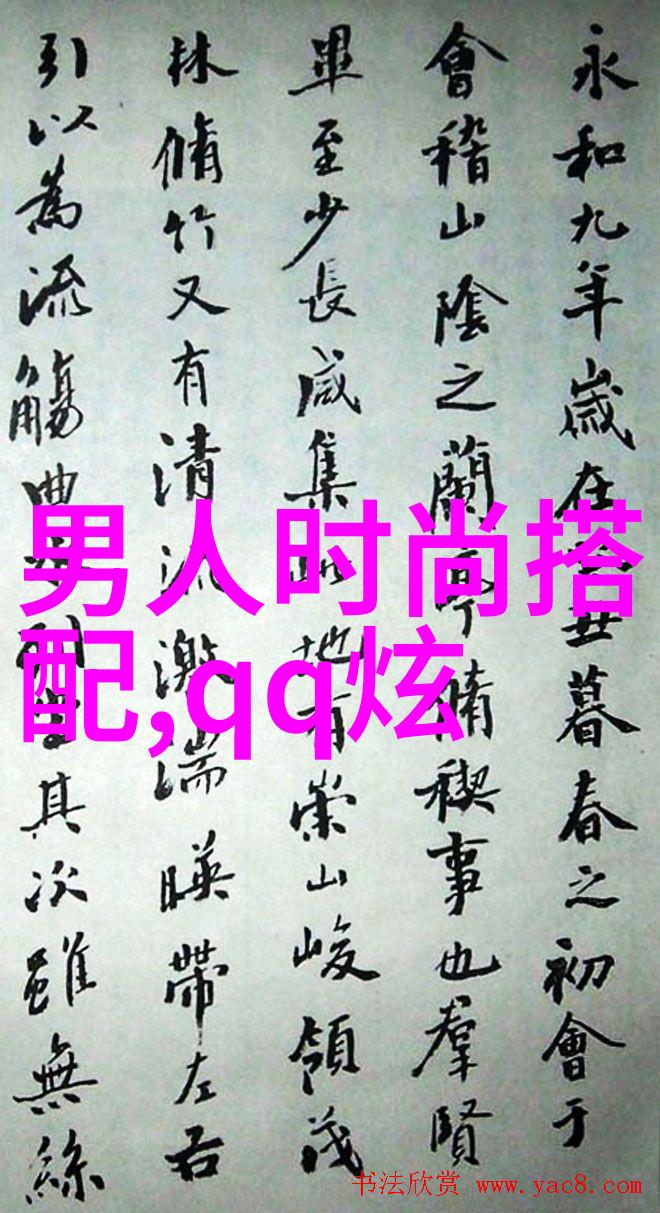 永和九年歲在癸丑暮春之初會于
會稽山陰之蘭亭脩稧事也羣賢
畢至少長咸集此地有崇山峻領茂
林脩竹又有清流激湍暎帶左右
引以為流觴曲水列坐其次雖無絲
男人时尚搭
配,qq炫
书法欣赏 www.yac8.com